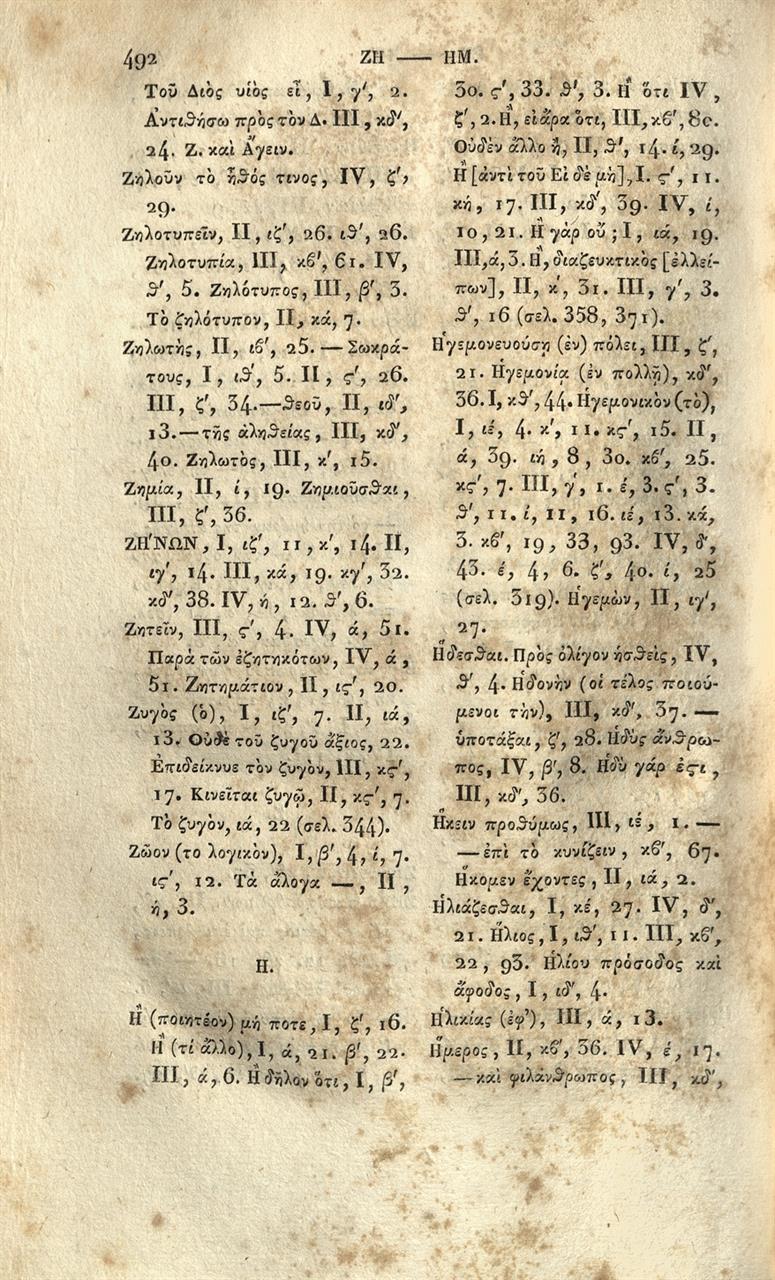 492 ΖΗ — ΗΜ.
Τοῦ Διὸς υἱὸς εἶ, I, γ', 2.
Ἀντιθήσω πρὸς τὸν Δ. III, κδ',
24. Ζ. καὶ Ἄγειν.
Ζηλοῦν τὸ ἦθός τινος, IV, ζ',
29.
Ζηλοτυπεῖν, II, ιζ', 26. ιθ', 26.
Ζηλοτυπία, III, κβ', 61. IV,
θ', 5. Ζηλότυπος, III, β', 3.
Τὸ ζηλότυπον, II, κά, 7.
Ζηλωτὴς, II, ιβ', 25. — Σωκρά-
τους, I, ιθ', 5. II, ς', 26.
III, ζ', 34.—θεοῦ, II, ιδ',
13.—τῆς ἀληθείας, III, κδ',
40. Ζηλωτὸς, III, κ', 15.
Ζημία, II, ί, 19. Ζημιοῦσθαι,
III, ζ', 36.
ΖΗ'ΝΩΝ, I, ιζ', 11, κ', 14. II,
ιγ', 14. III, κά, 19. κγ', 32.
κδ', 38. IV, ή, 12. θ', 6.
Ζητεῖν, III, ς', 4. IV, ά, 51.
Παρὰ τῶν ἐζητηκότων, IV, ά,
51. Ζητημάτιον, II, ις', 20.
Ζυγὸς (ὁ), I, ιζ', 7. II, ιά,
13. Οὐδὲ τοῦ ζυγοῦ ἄξιος, 22.
Ἐπιδείκνυε τὸν ζυγὸν, III, κς',
17. Κινεῖται ζυγῷ, II, κς', 7.
Τὸ ζυγὸν, ιά, 22 (σελ. 344).
Ζῶον (το λογικὸν), I, β', 4, ί, 7.
ις', 12. Τὰ ἄλογα —, II,
ή, 3.
Η.
Ἢ (ποιητέον) μή ποτε, I, ζ', 16.
Ἢ (τί ἄλλο), I, ά, 21. β', 22.
III, ά, 6. Ἢ δῆλον ὅτι, I, β',
30. ς', 33. θ', 3. Ἢ ὅτι IV,
ζ', 2. Ἢ, εἰ ἄρα ὅτι, III, κβ', 80.
Οὐδὲν ἄλλο ἢ, II, θ', 14. ί, 29.
Ἢ [ἀντὶ τοῦ Εἰ δὲ μὴ], I. ς', 11.
κή, 17. III, κδ', 39. IV, ί,
10, 21. Ἢ γὰρ οὔ; I, ιά, 19.
III, ά, 3. Ἢ, διαζευκτικὸς [ἐλλεί-
πων], II, κ', 31. III, γ', 3.
θ', 16 (σελ. 358, 371).
Ἡγεμονευούσῃ (ἐν) πόλει, III, ζ',
21. Ἡγεμονία (ἐν πολλῇ), κδ',
36. I, κθ', 44. Ἡγεμονικὸν (τὸ),
I, ιέ, 4. κ', 11. κς', 15. II,
ά, 39. ιή, 8, 30. κβ', 25.
κς', 7. III, γ', 1. έ, 3. ς', 3.
θ', 11. ί, 11, 16. ιέ, 13. κά,
3. κβ', 19, 33, 93. IV, δ',
43. έ, 4, 6. ζ', 40. ί, 25
(σελ. 319). Ἡγεμὼν, II, ιγ',
27.
Ἥδεσθαι. Πρὸς ὀλίγον ἡσθεὶς, IV,
θ', 4. Ἡδονὴν (οἱ τέλος ποιού-
μενοι τὴν), III, κδ', 37. —
ὑποτάξαι, ζ', 28. Ἡδὺς ἄνθρω-
πος, IV, β', 8. Ἡδὺ γάρ ἐςι,
III, κδ', 36.
Ἥκειν προθύμως, III, ιέ, 1. —
— ἐπὶ τὸ κυνίζειν, κβ', 67.
Ἥκομεν ἔχοντες, II, ιά, 2.
Ἡλιάζεσθαι, I, κέ, 27. IV, δ',
21. Ἥλιος, I, ιθ', 11. III, κβ',
22, 93. Ἡλίου πρόσοδος καὶ
ἄφοδος, I, ιδ', 4.
Ἡλικίας (ἐφ'), III, ά, 13.
Ἥμερος, II, κβ', 36. IV, έ, 17.
— καὶ φιλάνθρωπος, III, κδ',